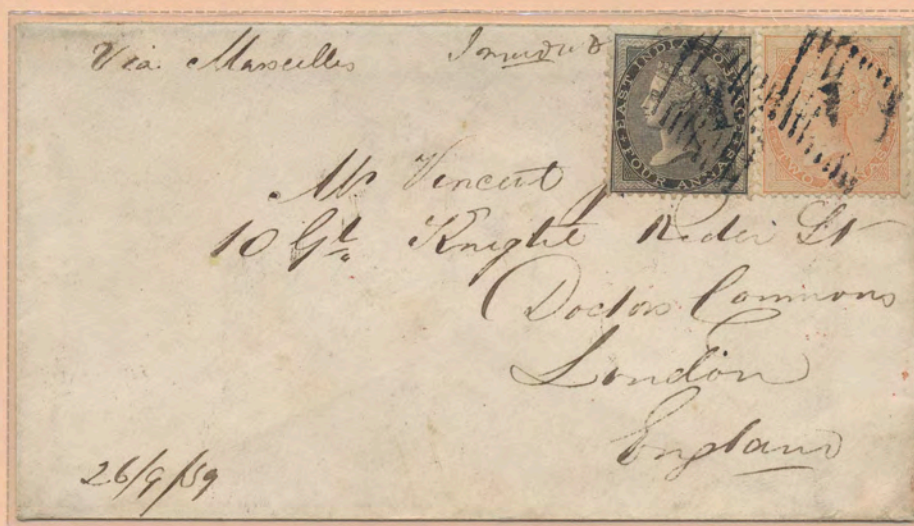 Via Marseilles
EAST INDIA POSTAGE
FOUR ANNAS
TWO ANNAS
Mr Vincent
10 Gt Knight Rider St
Doctors Commons
London
England
26/9/59